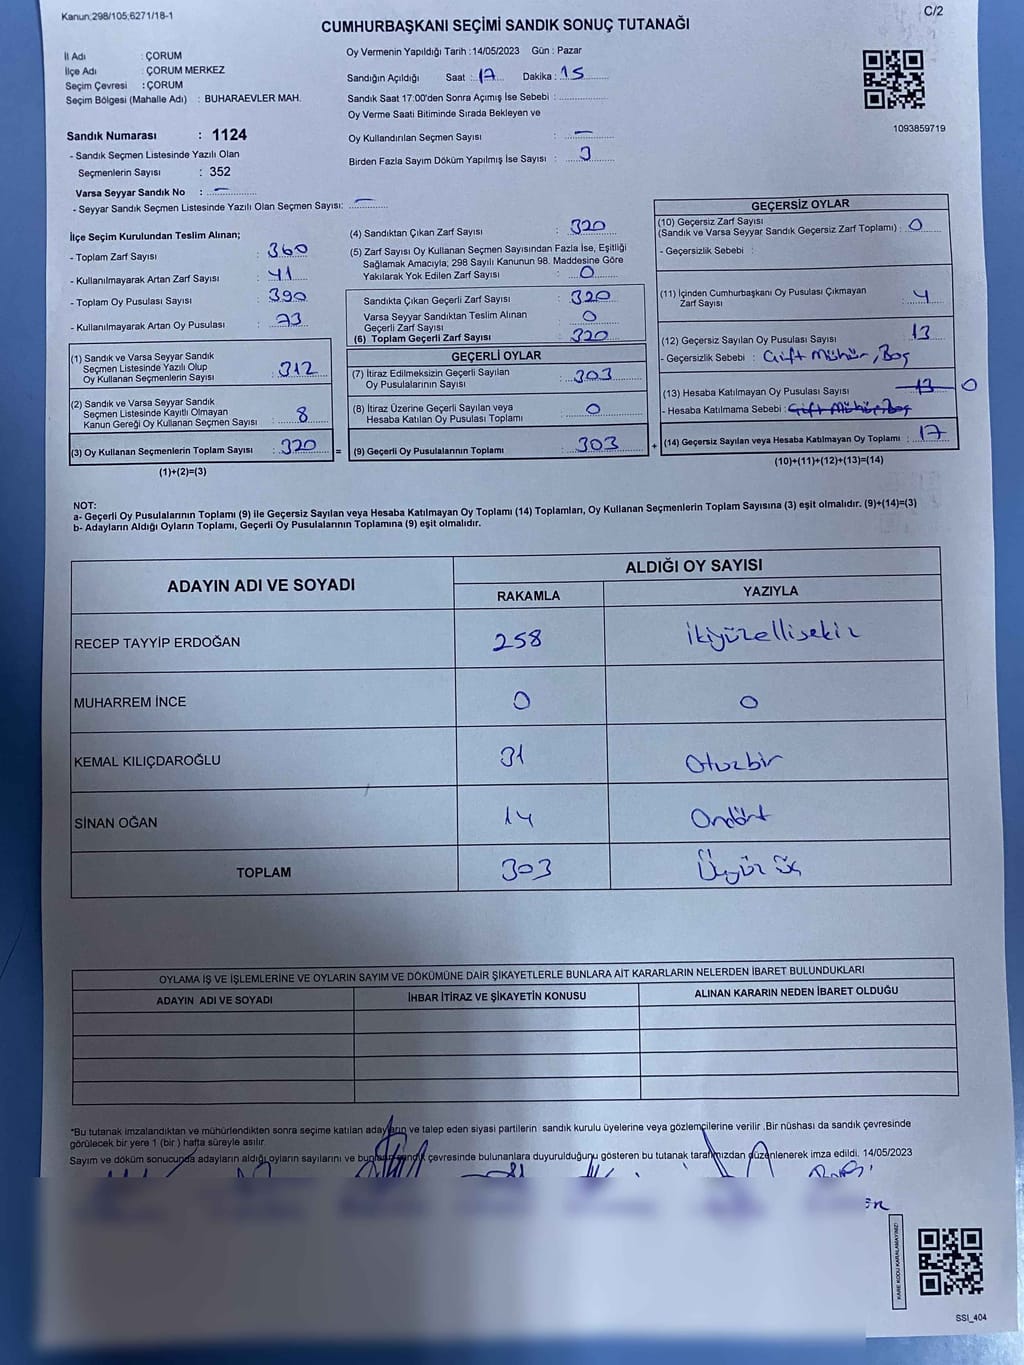 Kanun;298/105;6271/18-1
C/2
CUMHURBAŞKANI SEÇİMİ SANDIK SONUÇ TUTANAĞI
İl Adı : ÇORUM
İlçe Adı : ÇORUM MERKEZ
Seçim Çevresi : ÇORUM
Seçim Bölgesi (Mahalle Adı) : BUHARAEVLER MAH.
Sandık Numarası : 1124
- Sandık Seçmen Listesinde Yazılı Olan
Seçmenlerin Sayısı : 352
Varsa Seyyar Sandık No : —
- Seyyar Sandık Seçmen Listesinde Yazılı Olan Seçmen Sayısı: —
Oy Vermenin Yapıldığı Tarih :14/05/2023 Gün : Pazar
Sandığın Açıldığı Saat : 17 Dakika : 15
Sandık Saat 17:00'den Sonra Açımış İse Sebebi :
Oy Verme Saati Bitiminde Sırada Bekleyen ve
Oy Kullandırılan Seçmen Sayısı : —
Birden Fazla Sayım Döküm Yapılmış İse Sayısı : 3
1093859719
İlçe Seçim Kurulundan Teslim Alınan;
- Toplam Zarf Sayısı : 360
- Kullanılmayarak Artan Zarf Sayısı : 41
- Toplam Oy Pusulası Sayısı : 390
- Kullanılmayarak Artan Oy Pusulası : 73
(1) Sandık ve Varsa Seyyar Sandık
Seçmen Listesinde Yazılı Olup
Oy Kullanan Seçmenlerin Sayısı : 312
(2) Sandık ve Varsa Seyyar Sandık
Seçmen Listesinde Kayıtlı Olmayan
Kanun Gereği Oy Kullanan Seçmen Sayısı : 8
(3) Oy Kullanan Seçmenlerin Toplam Sayısı : 320
(1)+(2)=(3)
=
(4) Sandıktan Çıkan Zarf Sayısı : 320
(5) Zarf Sayısı Oy Kullanan Seçmen Sayısından Fazla İse, Eşitliği
Sağlamak Amacıyla; 298 Sayılı Kanunun 98. Maddesine Göre
Yakılarak Yok Edilen Zarf Sayısı : 0
Sandıkta Çıkan Geçerli Zarf Sayısı : 320
Varsa Seyyar Sandıktan Teslim Alınan
Geçerli Zarf Sayısı : 0
(6) Toplam Geçerli Zarf Sayısı : 320
GEÇERLİ OYLAR
(7) İtiraz Edilmeksizin Geçerli Sayılan
Oy Pusulalarının Sayısı : 303
(8) İtiraz Üzerine Geçerli Sayılan veya
Hesaba Katılan Oy Pusulası Toplamı : 0
(9) Geçerli Oy Pusulalarının Toplamı : 303
+
GEÇERSİZ OYLAR
(10) Geçersiz Zarf Sayısı
(Sandık ve Varsa Seyyar Sandık Geçersiz Zarf Toplamı) : 0
- Geçersizlik Sebebi :
(11) İçinden Cumhurbaşkanı Oy Pusulası Çıkmayan
Zarf Sayısı : 4
(12) Geçersiz Sayılan Oy Pusulası Sayısı : 13
- Geçersizlik Sebebi : Çift Mühür, Boş
(13) Hesaba Katılmayan Oy Pusulası Sayısı : 13 0
- Hesaba Katılmama Sebebi : Çift Mühür, Boş
(14) Geçersiz Sayılan veya Hesaba Katılmayan Oy Toplamı : 17
(10)+(11)+(12)+(13)=(14)
NOT:
a- Geçerli Oy Pusulalarının Toplamı (9) ile Geçersiz Sayılan veya Hesaba Katılmayan Oy Toplamı (14) Toplamları, Oy Kullanan Seçmenlerin Toplam Sayısına (3) eşit olmalıdır. (9)+(14)=(3)
b- Adayların Aldığı Oyların Toplamı, Geçerli Oy Pusulalarının Toplamına (9) eşit olmalıdır.
ADAYIN ADI VE SOYADI
ALDIĞI OY SAYISI
RAKAMLA YAZIYLA
RECEP TAYYİP ERDOĞAN 258 ikiyüzellisekiz
MUHARREM İNCE 0 0
KEMAL KILIÇDAROĞLU 31 Otuzbir
SİNAN OĞAN 14 Ondört
TOPLAM 303 Üçyüz üç
OYLAMA İŞ VE İŞLEMLERİNE VE OYLARIN SAYIM VE DÖKÜMÜNE DAİR ŞİKAYETLERLE BUNLARA AİT KARARLARIN NELERDEN İBARET BULUNDUKLARI
ADAYIN ADI VE SOYADI İHBAR İTİRAZ VE ŞİKAYETİN KONUSU ALINAN KARARIN NEDEN İBARET OLDUĞU
*Bu tutanak imzalandıktan ve mühürlendikten sonra seçime katılan adayların ve talep eden siyasi partilerin sandık kurulu üyelerine veya gözlemcilerine verilir .Bir nüshası da sandık çevresinde
görülecek bir yere 1 (bir ) hafta süreyle asılır.
Sayım ve döküm sonucunda adayların aldığı oyların sayılarını ve bunların sandık çevresinde bulunanlara duyurulduğunu gösteren bu tutanak tarafımızdan düzenlenerek imza edildi. 14/05/2023
KARE KODU KARALAMAYINIZ!
SSI_404